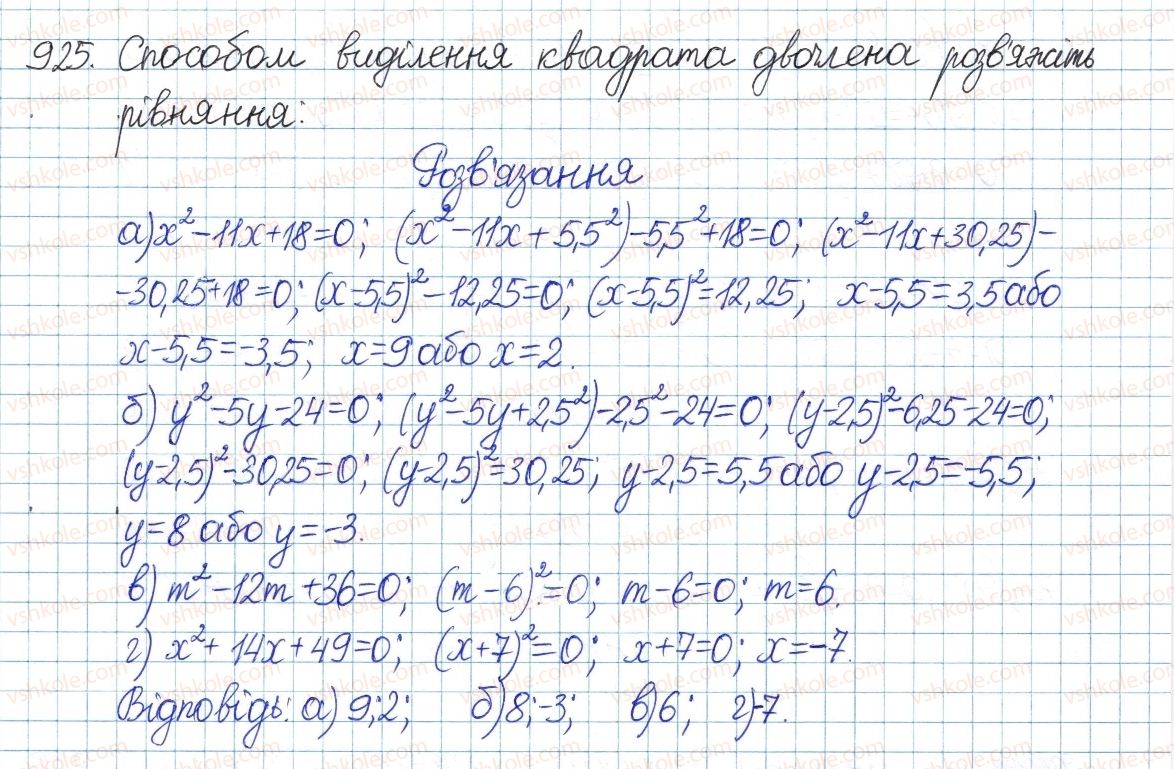 925. Способом виділення квадрата двочлена розв'яжіть
рівняння:
Розв'язання
а) x²-11x+18=0; (x²-11x+5,5²)-5,5²+18=0; (x²-11x+30,25)-
-30,25+18=0; (x-5,5)²-12,25=0; (x-5,5)²=12,25; x-5,5=3,5 або
x-5,5=-3,5; x=9 або x=2.
б) y²-5y-24=0; (y²-5y+2,5²)-2,5²-24=0; (y-2,5)²-6,25-24=0;
(y-2,5)²-30,25=0; (y-2,5)²=30,25; y-2,5=5,5 або y-2,5=-5,5;
y=8 або y=-3.
в) m²-12m+36=0; (m-6)²=0; m-6=0; m=6.
г) x²+14x+49=0; (x+7)²=0; x+7=0; x=-7.
Відповідь: а) 9;2; б) 8;-3; в) 6; г) -7.